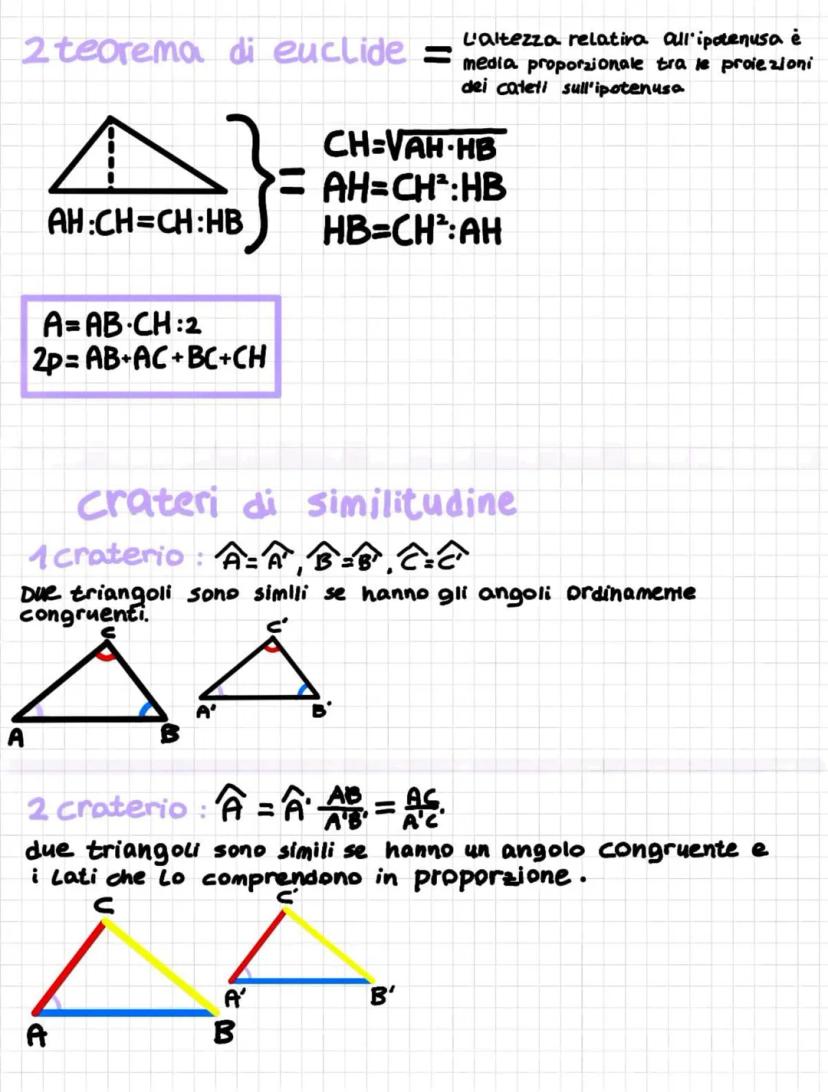 2 teorema di euclide = L'altezza relativa all'ipotenusa è
media proporzionale tra le proiezioni
dei cateti sull'ipotenusa
AH:CH=CH:HB
CH=√AH·HB
= AH=CH²:HB
HB=CH²:AH
A=AB·CH:2
2p=AB+AC+BC+CH
crateri di similitudine
1 craterio : Â=Â', B̂=B̂', Ĉ=Ĉ'
Due triangoli sono simili se hanno gli angoli ordinamente
congruenti.
C
C'
A'
B'
A
B
2 craterio : Â = Â' AB/A'B' = AC/A'C'
due triangoli sono simili se hanno un angolo congruente e
i lati che lo comprendono in proporzione.
C
C'
A'
B'
A
B